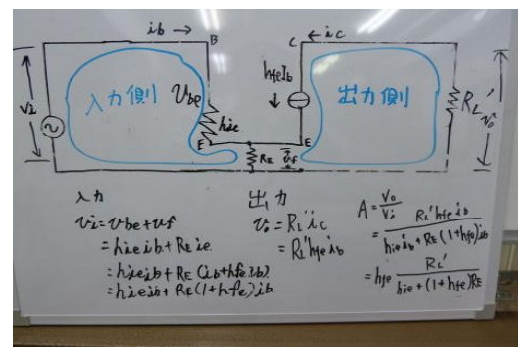 ib → B
C ← ic
hfeIb ↓
vi
入力側
vbe
hie
E
E
RE
vf
出力側
RL'
vo
入力
vi = vbe + vf
= hieib + REie
= hieib + RE(ib+hfeib)
= hieib + RE(1+hfe)ib
出力
vo = RL'ic
= RL'hfeib
A = vo/vi
= RL'hfeib / hieib + RE(1+hfe)ib
= hfe RL' / hie + (1+hfe)RE